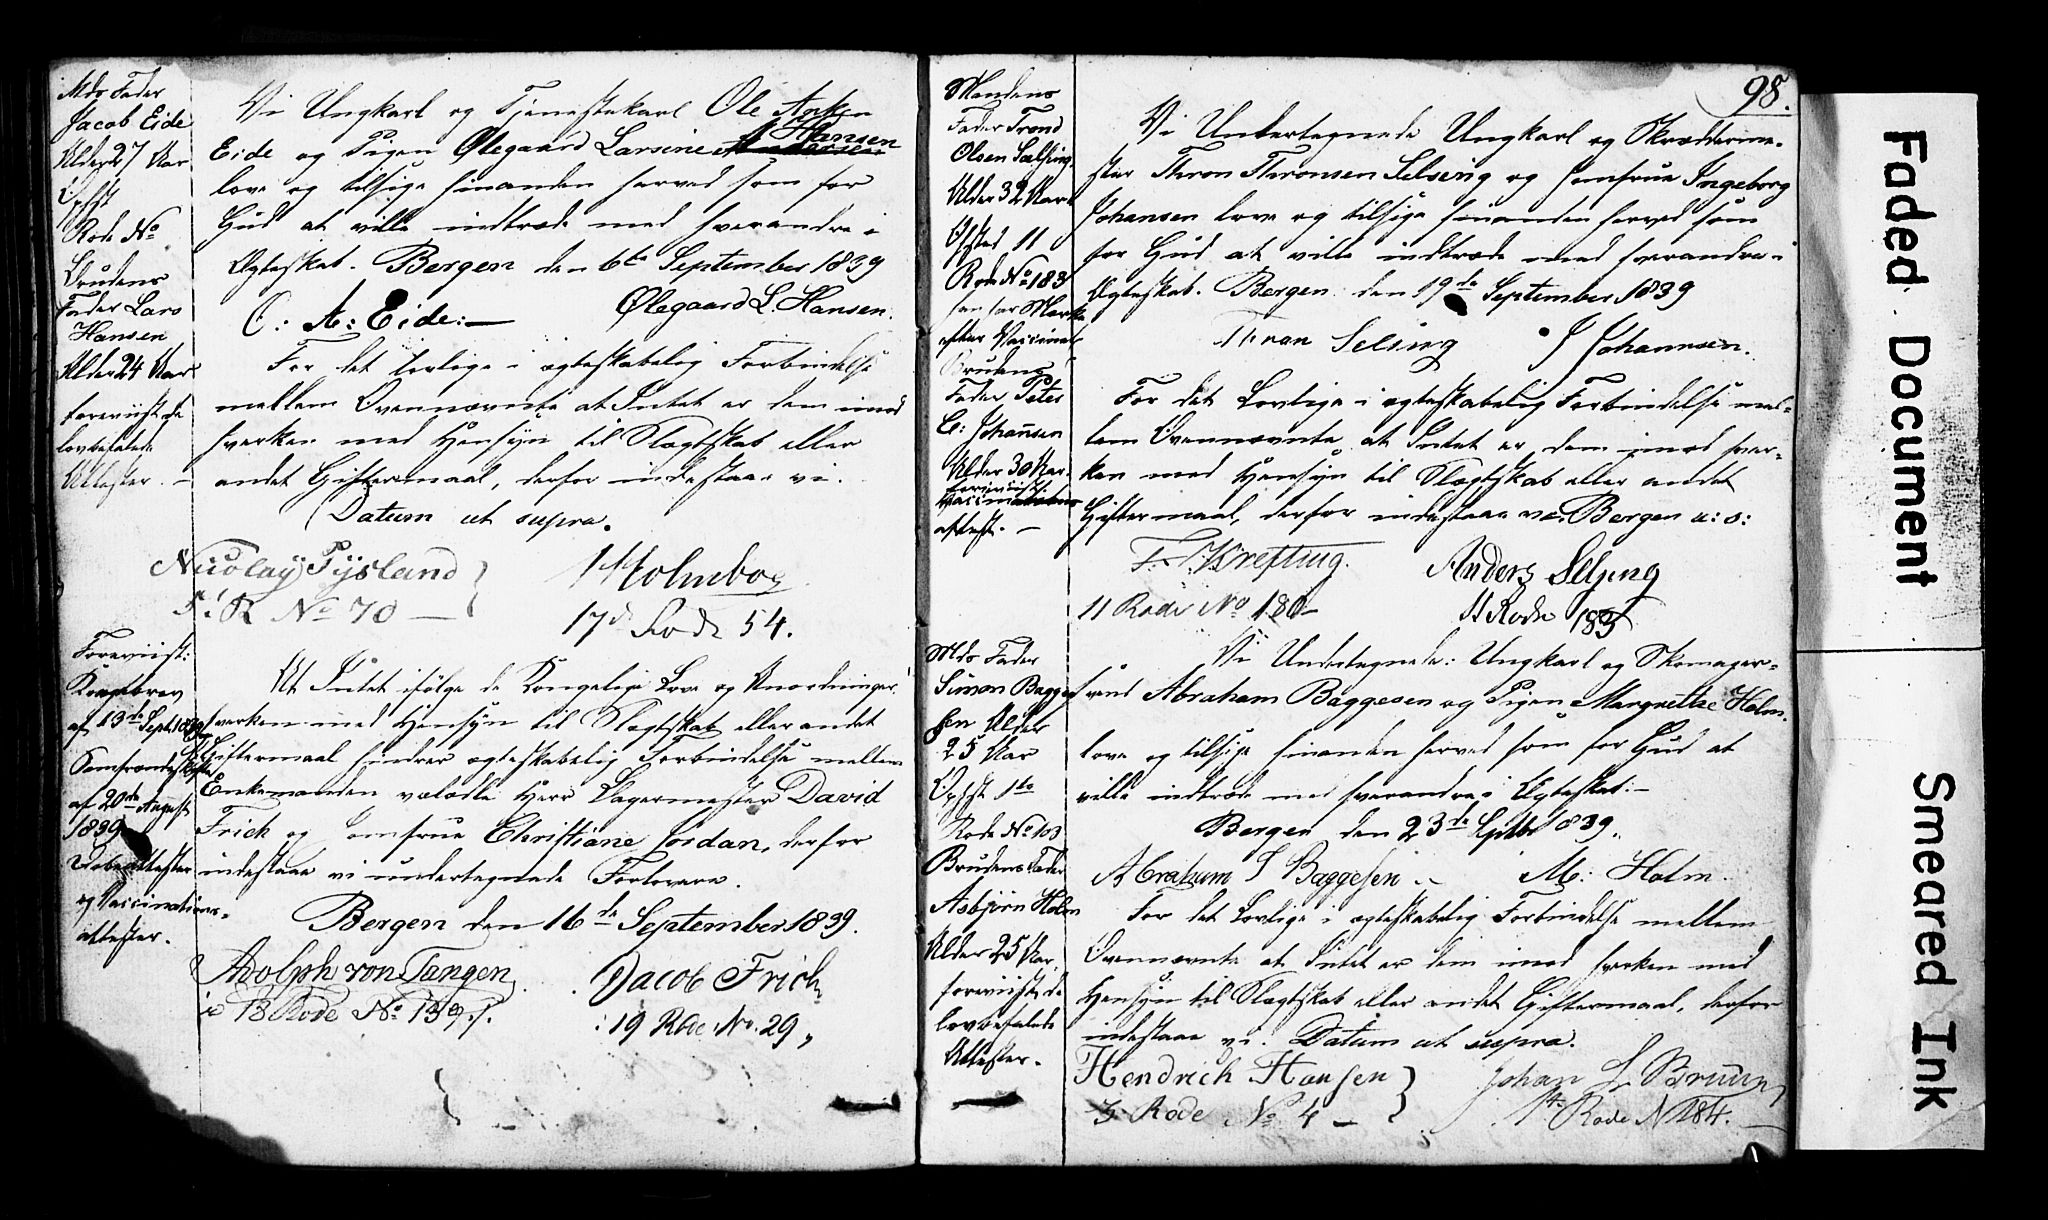 Mds Fader
Jacob Eide
Alder 27 Aar
Opfst
Rode No
Brudens
Fader Lars
Hansen
Alder 24 Aar
foreviist de
lovbefalede
Attester. –
Vi Ungkarl og Tjenestekarl Ole
Hansen
Eide og Pigen Ølegaard Larsine
love og tilsige hinanden herved som for
Gud at ville indtræde med hverandre i
Ægteskab. Bergen den 6te September 1839
O: A: Eide:— Ølegaard L. Hansen.
For det lovlige i ægteskabelig Forbindelse
mellem Ovennævnte at Intet er dem imod
hverken med Hensyn til Slægtskab eller
andet Giftermaal, derfor indestaae vi.
Datum ut supra.
Nicolay Tysland Holmboe
5' R No 70 — 17d Rode 54.
Foreviist:
Kongebrev
af 13de Sept. 1839
af 20de August
1839
Døbeattester
og Vaccinations-
attester.
At Intet ifølge de Kongelige Love og Anordninger,
hverken med Hensyn til Slægtskab eller andet
Giftermaal hindrer ægteskabelig Forbindelse mellem
Enkemanden velædle Herr Vagermester David
Frich og Jomfrue Christiane Jordan, derfor
indestaae vi undertegnede Forlovere.
Bergen den 16de September 1839.
Adolph von Tangen Jacob Frich
i 13 Rode No 139. 19 Rode No. 29,
98.
Mandens
Fader Trond
Olsen Sælsing
Alder 32 Aar
Opfsted 11
Rode No 183
han har Mærke
efter Vaccinat
Brudens
Fader Peter
C: Johansen
Alder 30 Aar.
foreviist
Vaccinations
attest. —
Vi Undertegnede Ungkarl og Skrædderme-
ster Thron Thronsen Selseng og Jomfrue Ingeborg
Johansen love og tilsige hinanden herved som
for Gud at ville indtræde med hverandre i
Ægteskab. Bergen den 19de September 1839
Thron Selsing J Johannsen.
For det Lovlige i ægteskabelig Forbindelse mel-
lem Ovennævnte at Intet er dem imod hver-
ken med Hensyn til Slægtskab eller andet
Giftermaal, derfor indestaae vi. Bergen u: s:
F. Krefting. Anders Selseng
11 Rode No 180 – 11 Rode 183
Mds Fader
Simon Bagge
sen Alder
25 Aar
Opfst 1te
Rode No 103
Brudens Fader
Asbjørn Holm
Alder 25 Aar
foreviist de
lovbefalede
Attester.
Vi Undertegnede: Ungkarl og Skomager-
svend Abraham Baggesen og Pigen Margrethe Holm.
love og tilsige hinanden herved som for Gud at
ville indtræde med hverandre i Ægteskab:—
Bergen den 23de Septbr 1839.
Abraham S Baggesen M: Holm.
For det Lovlige i ægteskabelig Forbindelse mellem
Ovennævnte at Intet er dem imod hverken med
Hensyn til Slægtskab eller andet Giftermaal, derfor
indestaae vi. Datum ut supra.
Hendrich Hansen Johan L Bruun
3 Rode No 4 — 1te Rode N 184.
Faded Document
Smeared Ink